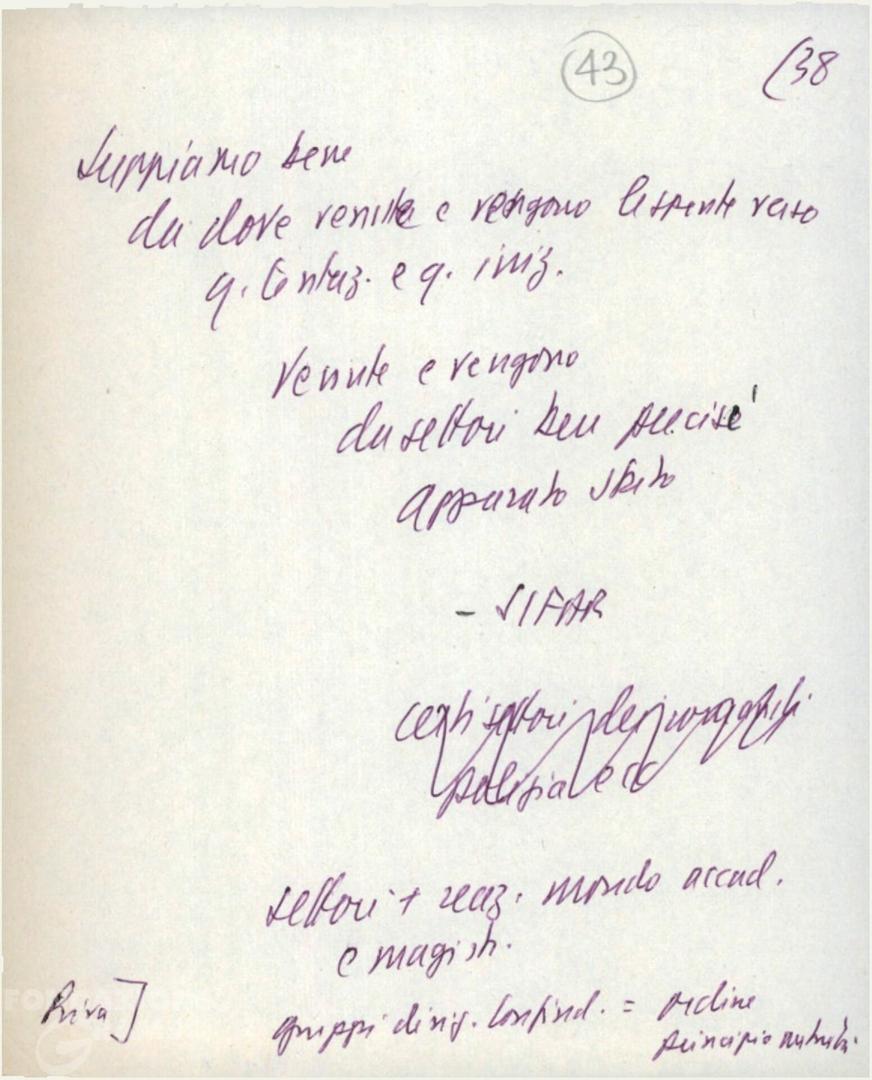 43 (38
Sappiamo bene
da dove venute e vengono le spinte verso
q. tentaz. e q. iniz.
Venute e vengono
da settori ben precisi
apparato stato
- SIFAR
certi settori dei
polizia ecc
settori + reaz. mondo accad.
e magistr.
Priva]
gruppi dirig. Confind. = ordine
principio